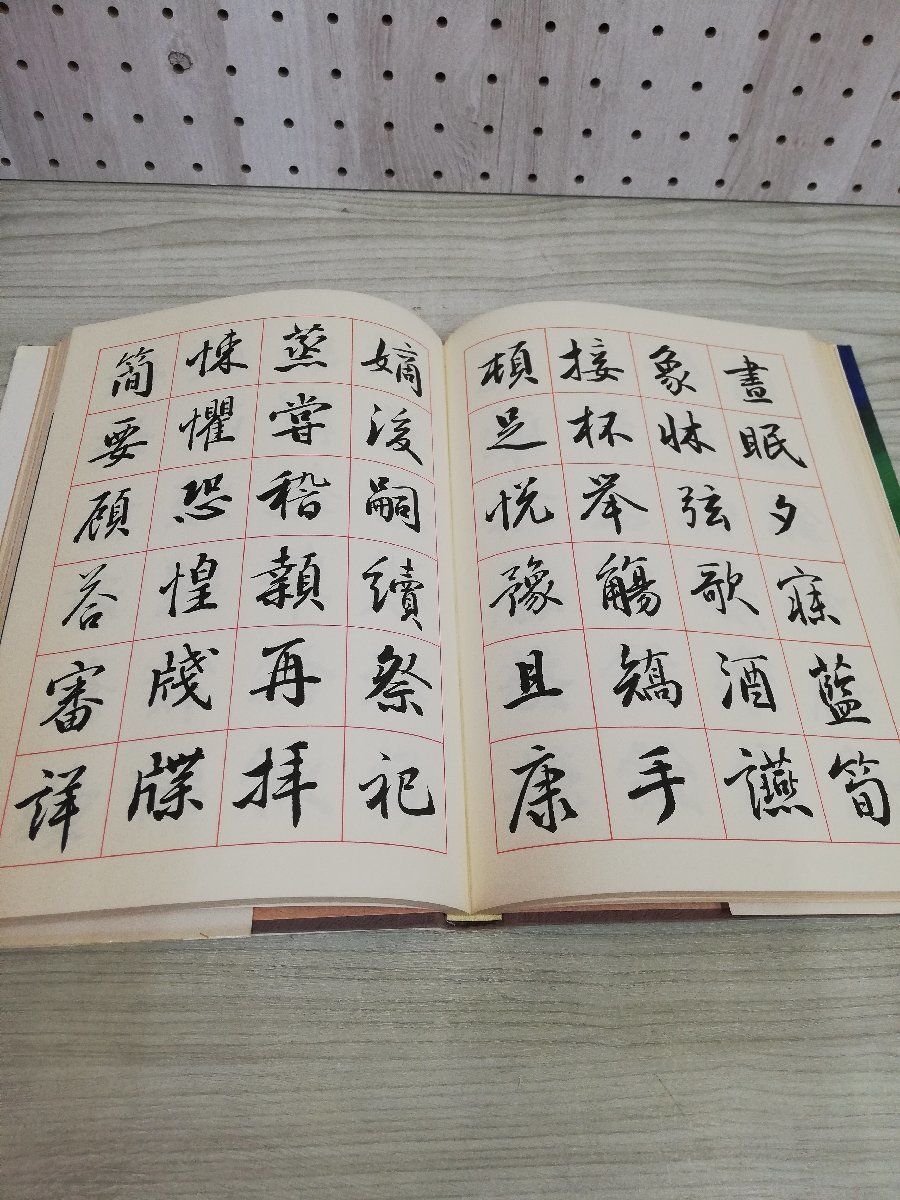 晝眠夕寐藍筍
象牀弦歌酒讌
接杯举觴矯手
頓足悦豫且康
嫡後嗣續祭祀
蒸嘗稽顙再拝
悚懼恐惶牋牒
簡要顧荅審詳